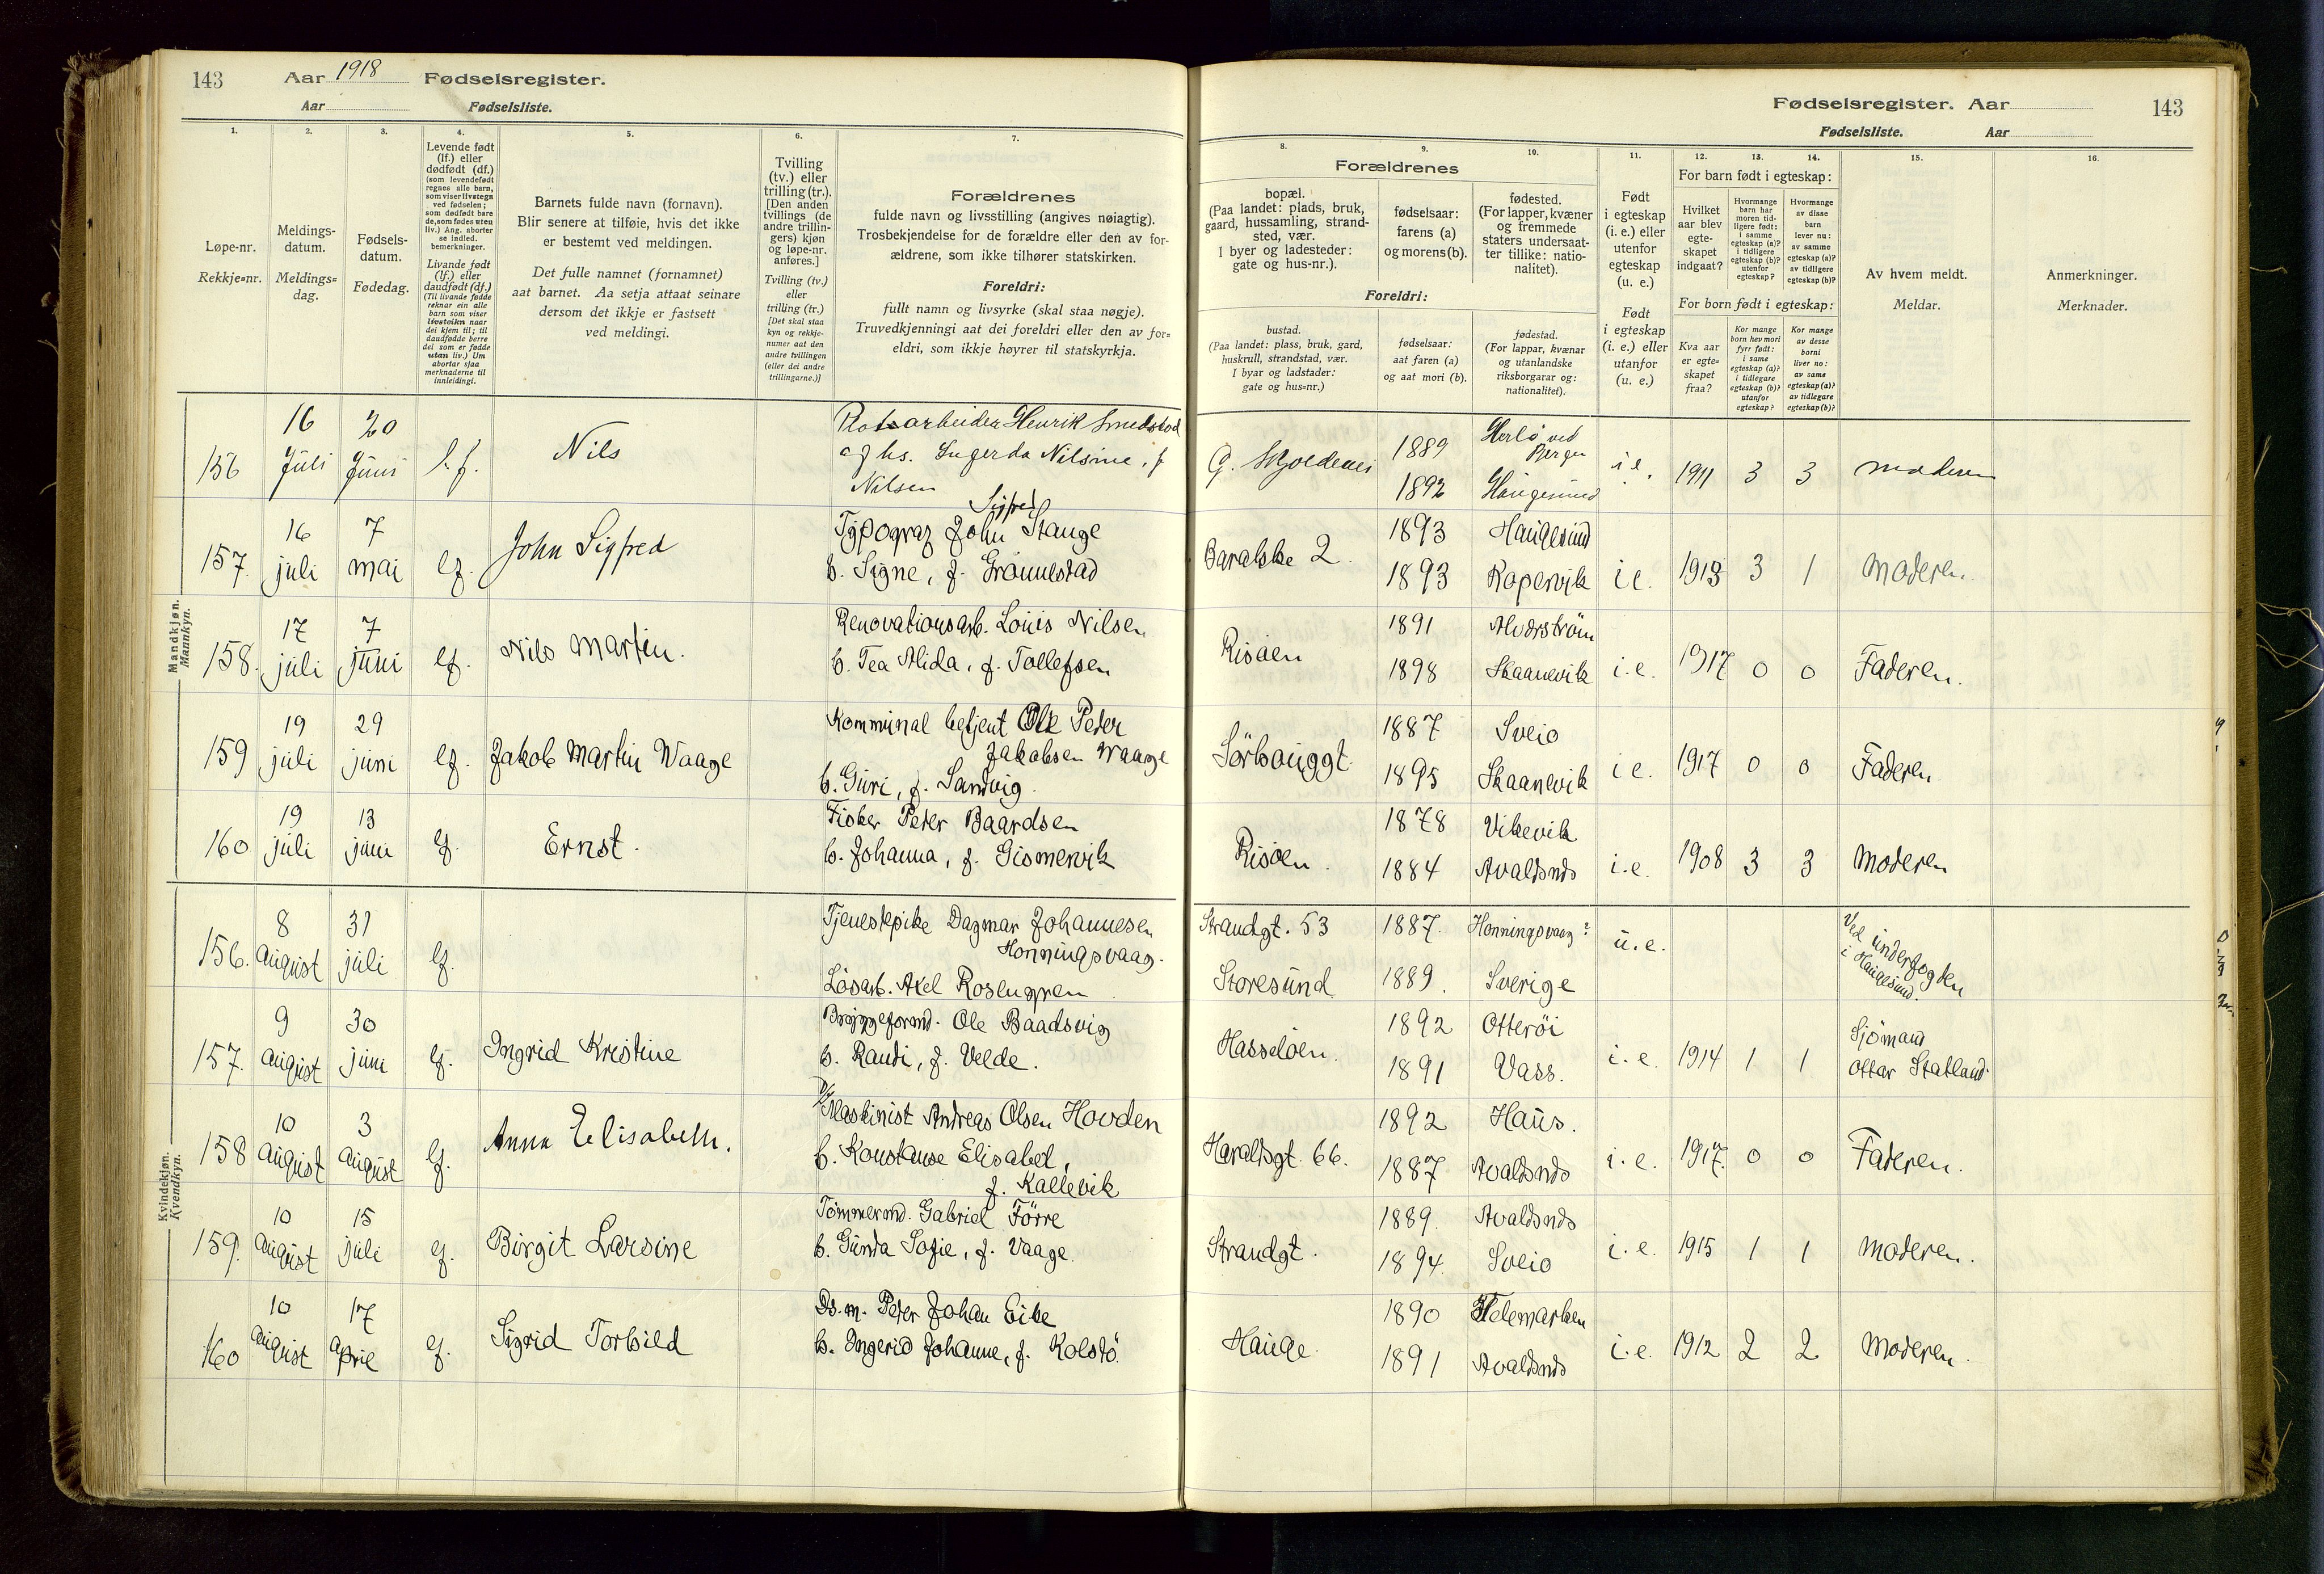 143 Aar 1918 Fødselsregister.
Aar Fødselsliste.
1. 2. 3. 4. 5. 6. 7.
Løpe-nr.
Rekkje=nr.
Meldings-
datum.
Meldings=
dag.
Fødsels-
datum.
Fødedag.
Levende født
(lf.) eller
dødfødt (df.)
(som levendefødt
regnes alle barn,
som viser livstegn
ved fødselen;
som dødfødt bare
de, som fødes uten
liv.) Ang. aborter
se indled.
bemerkninger.
Livande født
(lf.) eller
daudfødt (df.)
(Til livande fødde
reknar ein alle
barn som viser
livsteikn naar
dei kjem til; til
daudfødde berre
dei som er fødde
utan liv.) Um
abortar sjaa
merknaderne til
innleidingi.
Barnets fulde navn (fornavn).
Blir senere at tilføie, hvis det ikke
er bestemt ved meldingen.
Det fulle namnet (fornamnet)
aat barnet. Aa setja attaat seinare
dersom det ikkje er fastsett
ved meldingi.
Tvilling
(tv.) eller
trilling (tr.).
[Den anden
tvillings (de
andre trillin-
gers) kjøn
og løpe-nr.
anføres.]
Tvilling (tv.)
eller
trilling (tr.)
[Det skal staa
kyn og rekkje-
numer aat den
andre tvillingen
(eller dei andre
trillingarne.)]
Forældrenes
fulde navn og livsstilling (angives nøiagtig).
Trosbekjendelse for de forældre eller den av for-
ældrene, som ikke tilhører statskirken.
Foreldri:
fullt namn og livsyrke (skal staa nøgje).
Truvedkjenningi aat dei foreldri eller den av for=
eldri, som ikkje høyrer til statskyrkja.
Fødselsregister. Aar 143
Fødselsliste. Aar
8. 9. 10. 11. 12. 13. 14. 15. 16.
Forældrenes
bopæl.
(Paa landet: plads, bruk,
gaard, hussamling, strand-
sted, vær.
I byer og ladesteder:
gate og hus-nr.).
fødselsaar:
farens (a)
og morens (b).
fødested.
(For lapper, kvæner
og fremmede
staters undersaat-
ter tillike: natio-
nalitet).
Foreldri:
bustad.
(Paa landet: plass, bruk, gard,
huskrull, strandstad, vær.
I byar og ladstader:
gate og hus=nr.)
fødselsaar:
aat faren (a)
og aat mori (b).
fødestad.
(For lappar, kvænar
og utanlandske
riksborgarar og:
nationalitet).
Født
i egteskap
(i. e.) eller
utenfor
egteskap
(u. e.)
Født
i egteskap
(i. e.) eller
utanfor
(u. e.)
For barn født i egteskap:
Hvilket
aar blev
egte-
skapet
indgaat?
Hvormange
barn har
moren tid-
ligere født:
i samme
egteskap (a)?
i tidligere
egteskap (b)?
utenfor
egteskap?
Hvormange
av disse
barn
lever nu:
av samme
egteskap (a)?
av tidligere
egteskap (b)?
For born født i egteskap:
Kva aar
er egte=
skapet
fraa?
Kor mange
born hev mori
fyrr født:
i same
egteskap (a)?
i tidlegare
egteskap (b)?
utanfor
egteskap?
Kor mange
av desse
borni
liver no:
av same
egteskap (a)?
av tidlegare
egteskap (b)?
Av hvem meldt.
Meldar.
Anmerkninger.
Merknader.
Mandkjøn.
Mannkyn.
156 16 Juli 20 Juni l.f. Nils
arbeider Henrik Smedstad
og hs. Ingerda Nilsine, f
Nilsen
G. Skjoldevei 1889 Herlø ved Bergen
1892 Haugesund i.e. 1911 3 3 moderen
157. 16 juli 7 mai lf. John Sigfred
Typograf John Sigfred Stange
h. Signe, f. Grønnestad
2 1893 Haugesund
1893 Kopervik i.e. 1913 3 1 Moderen.
158. 17 juli 7 juni lf. Nils Martin.
Renovationsarb. Louis Nilsen
h. Tea Alida, f. Tollefsen
Risøen 1891 Alverstrøm
1898 Skaanevik i.e. 1917 0 0 Faderen.
159 19 juli 29 juni lf. Jakob Martin Waage
Kommunal betjent Ole Peder
Jakobsen Waage
h. Guri, f. Sandvig.
Sørhauggt. 1887 Sveio
1895 Skaanevik i.e. 1917 0 0 Faderen
160 19 juli 13 juni lf. Ernst.
Fisker Peder Baardsen
h. Johanna, f. Gismervik
Risøen. 1878 Vikevik
1884 Avaldsnds i.e. 1908 3 3 Moderen
Kvindekjøn.
Kvendkyn.
156. 8 August 31 juli lf.
Tjenestepike Dagmar Johannesen
Honningsvaag.
Løsarb. Axel Rosengren
Strandgt. 53 1887. Honningsvaag? u.e.
Storesund 1889. Sverige
Ved underfogden
i Haugesund.
157. 9 August 30 juni lf. Ingrid Kristine
Bryggeformd. Ole Baadsvig
h. Randi, f. Velde.
Hasseløen. 1892 Otterøi
1891 Vass. i.e. 1914 1 1 Sjømand
Ottar Statland
158 10 August 3 August lf. Anna Elisabeth.
Maskinist Andreas Olsen Hovden
h. Konstanse Elisabet,
f. Kallevik
Haraldsgt. 66. 1892 Haus.
1887 Avaldsnds i.e. 1917. 0 0 Faderen.
159. 10 August 15 juli lf. Birgit Larsine
Tømmermd. Gabriel Førre
h. Gunda Sofie, f. Vaage.
Strandgt. 1889. Avaldsnds
1894. Sveio i.e. 1915 1 1 Moderen.
160 10 August 17 April lf. Sigrid Torhild
Ds.m. Peder Johan Eike
h. Ingerid Johanne, f. Kolstø.
Hauge. 1890 Telemarken
1891 Avaldsnds i.e. 1912 2 2 Moderen.